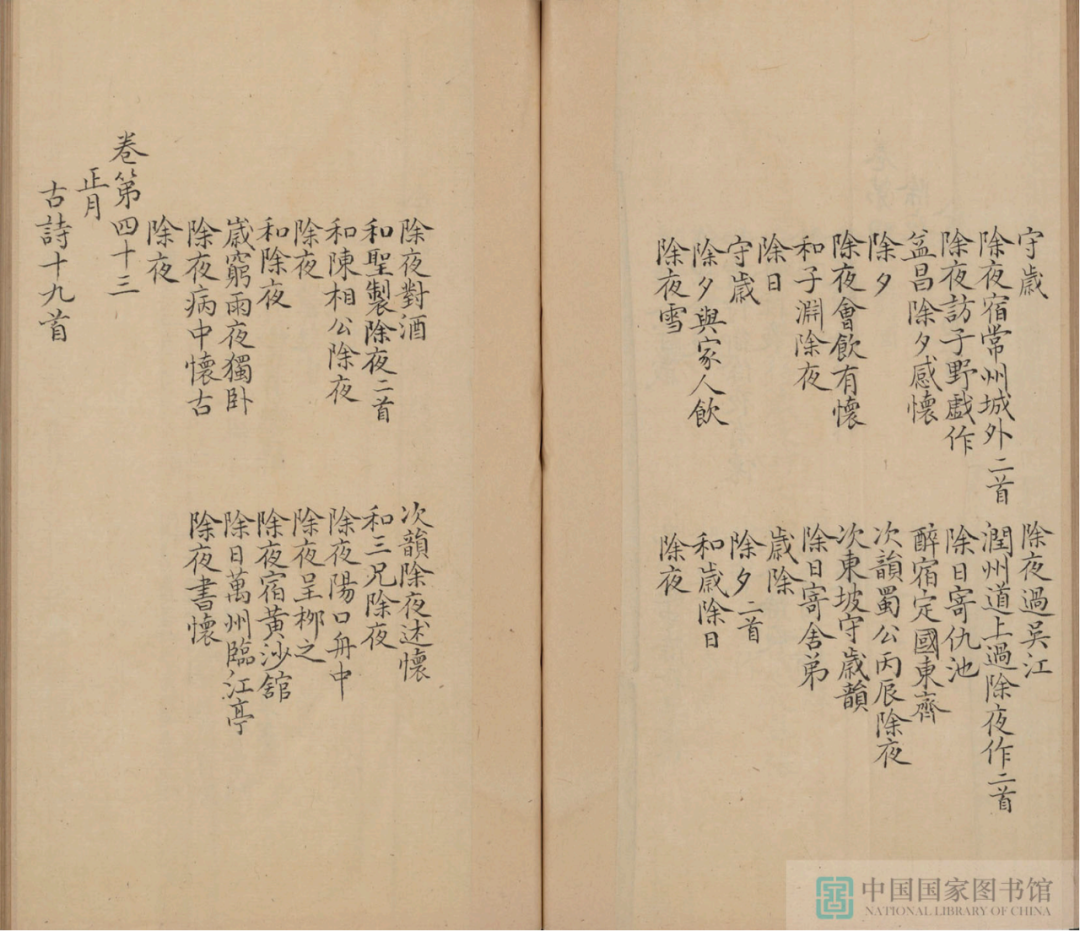 守歳
除夜過吳江
除夜宿常州城外二首
潤州道上過除夜作二首
除夜訪子野戯作
除日寄仇池
盆昌除夕感懷
醉宿定國東齊
除夕
次韻蜀公丙辰除夜
除夜會飲有懷
次東坡守歳韻
和子淵除夜
除日寄舎弟
除日
歳除
守歳
除夕二首
除夕與家人飲
和歳除日
除夜雪
除夜
除夜對酒
次韻除夜述懷
和聖製除夜二首
和三兄除夜
和陳相公除夜
除夜陽口舟中
除夜
除夜呈栁之
和除夜
除夜宿黃沙舘
歳窮雨夜獨卧
除日萬州臨江亭
除夜病中懷古
除夜書懷
除夜
卷第四十三
正月
古詩十九首
中国国家图书馆
NATIONAL LIBRARY OF CHINA